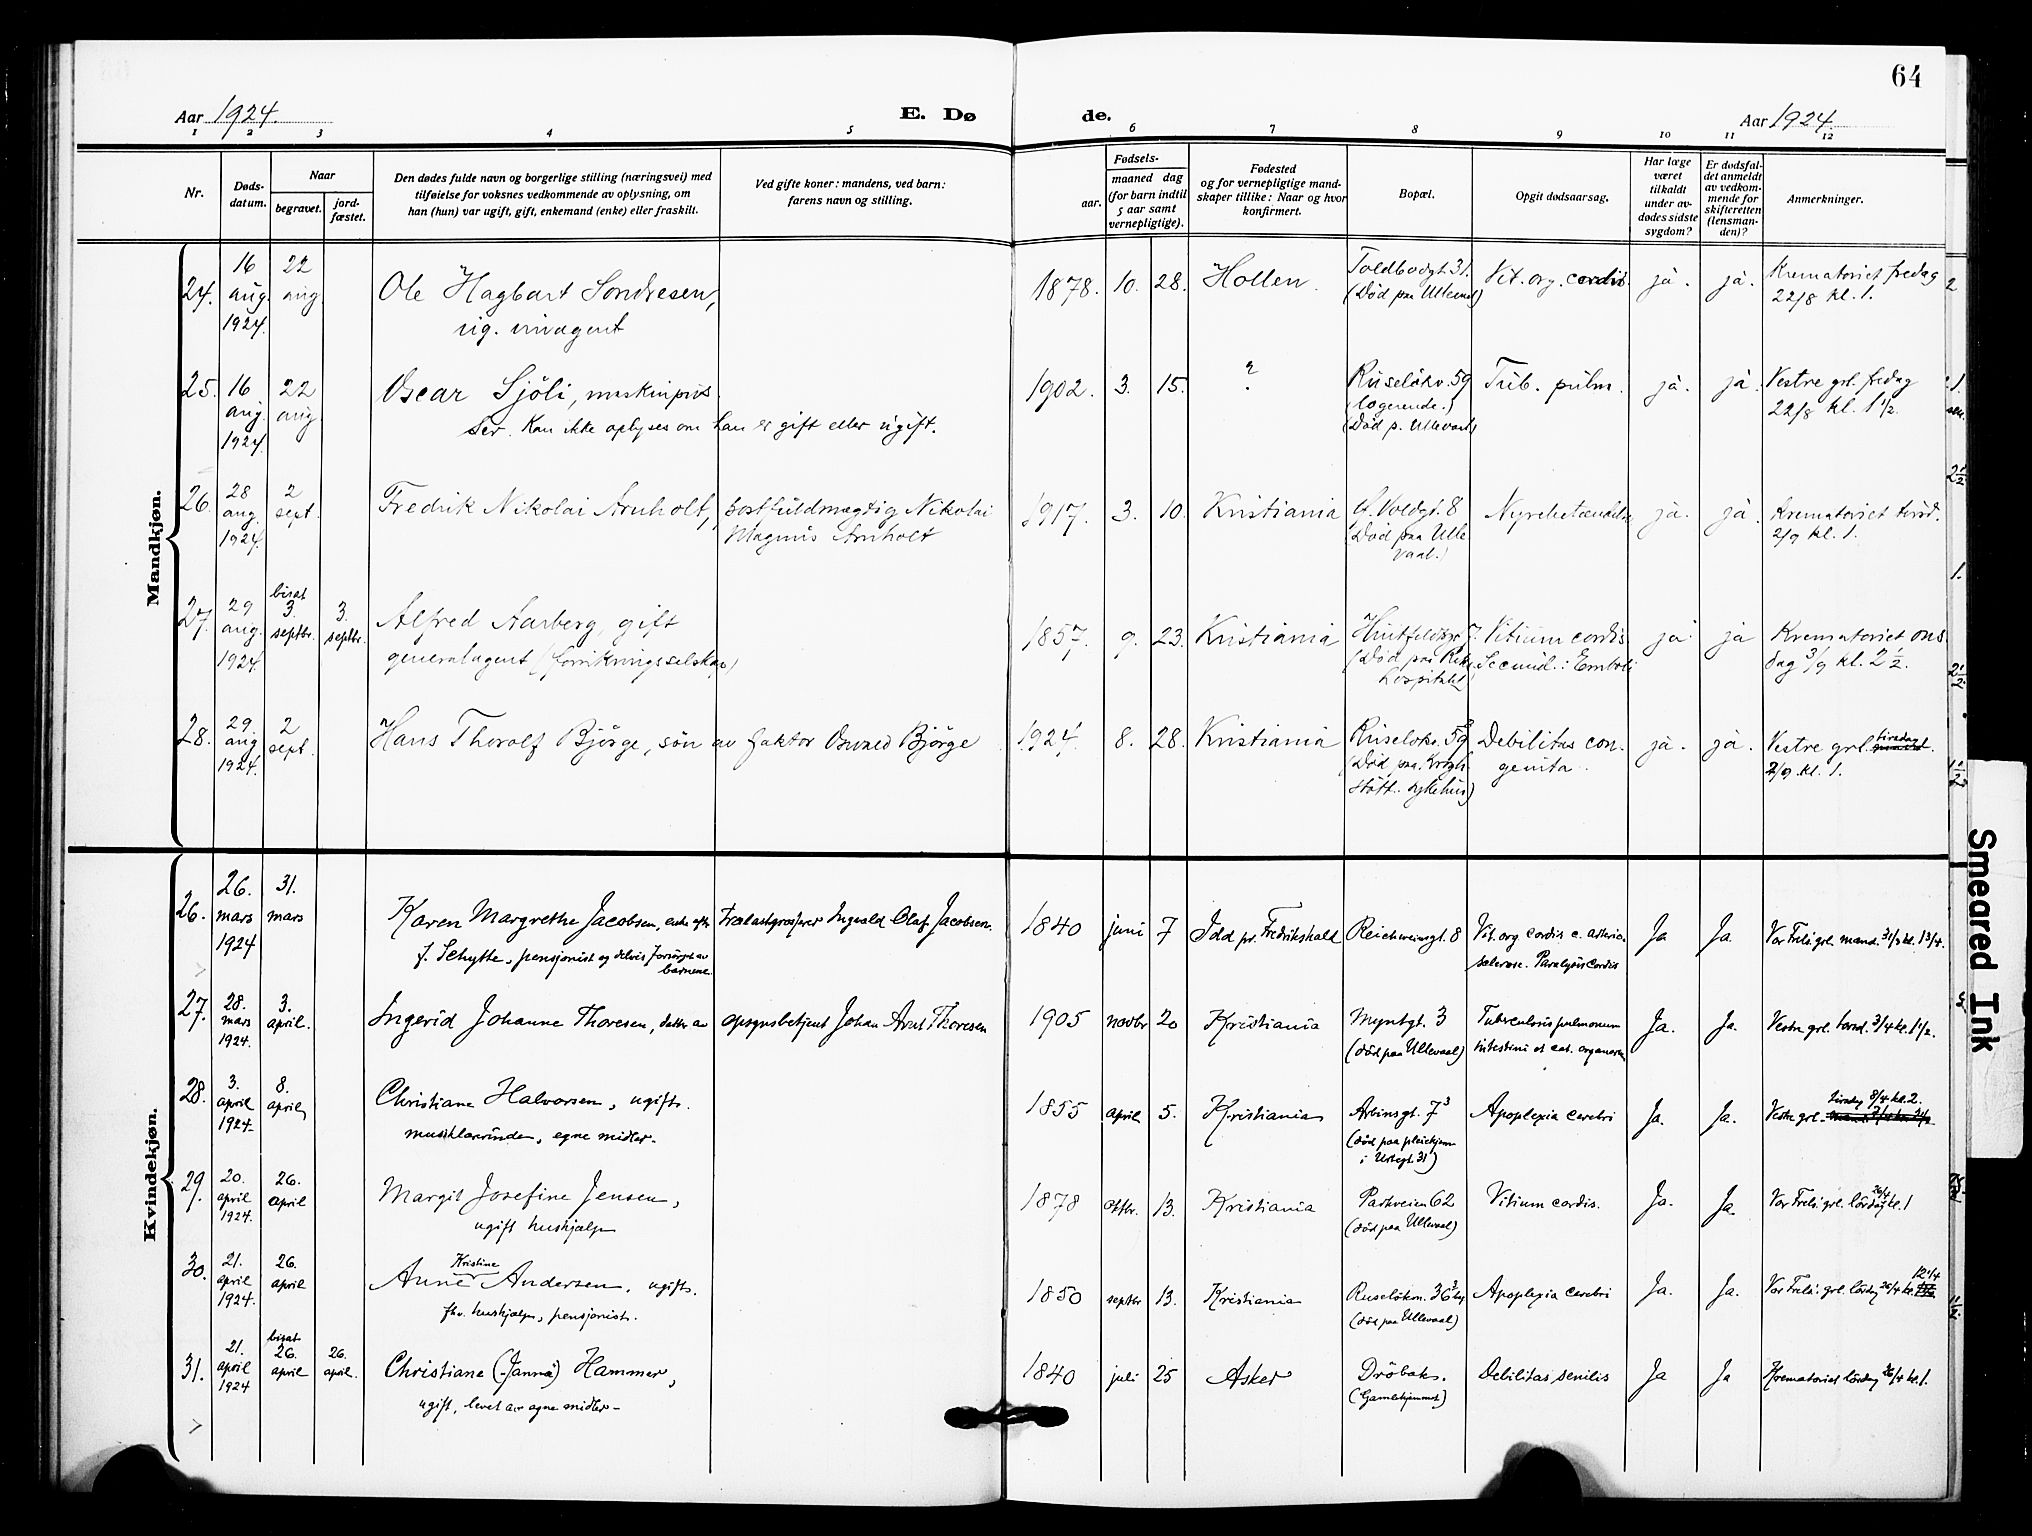 64
Aar 1924. E. Dø de. Aar 1924.
1 2 3 4 5 6 7 8 9 10 11 12
Nr.
Døds-
datum.
Naar
begravet.
jord-
fæstet.
Den dødes fulde navn og borgerlige stilling (næringsvei) med
tilføielse for voksnes vedkommende av oplysning, om
han (hun) var ugift, gift, enkemand (enke) eller fraskilt.
Ved gifte koner: mandens, ved barn:
farens navn og stilling.
Fødsels-
aar.
maaned dag
(for barn indtil
5 aar samt
vernepligtige).
Fødested
og for vernepligtige mand-
skaper tillike: Naar og hvor
konfirmert.
Bopæl.
Opgit dødsaarsag.
Har læge
været
tilkaldt
under av-
dødes sidste
sygdom?
Er dødsfal-
det anmeldt
av vedkom-
mende for
skifteretten
(lensman-
den)?
Anmerkninger.
Mandkjøn.
24.
16
aug.
1924.
22
aug.
Ole Hagbart Sondresen,
ug. vinagent
1878. 10. 28. Hollen.
Toldbodgt. 31.
(Død paa Ullevaal)
Vit. org. cordis.
ja. ja.
Krematoriet fredag
22/8 kl. 1.
25.
16
aug.
1924.
22
aug.
Oscar Sjöli, maskinpus
ser. Kan ikke oplyses om han er gift eller ugift.
1902. 3. 15. ?
Ruseløkv. 59
(logerende.)
(Død p. Ullevaal)
Tub. pulm.
ja. ja.
Vestre grl. fredag
22/8 kl. 1 1/2.
26.
28
aug.
1924.
2
sept.
Fredrik Nikolai Arnholt, postfuldmægtig Nikolai
Magnus Arnholt
1917. 3. 10. Kristiania
(Død paa Ulle
vaal.)
Nyrebetændelse
ja. ja.
Krematoriet tirsd.
2/9 kl. 1.
27.
29
aug.
1924.
bisat
3.
septbr.
3.
septbr.
Alfred Aarberg, gift
generalagent (forsikringsselskap)
1857. 9. 23. Kristiania
Huitfeldtsgt. 7.
(Død paa Riks
hospitalet)
Vitium cordis
Secund.: Emboli
ja ja
Krematoriet ons
dag 3/9 kl. 2 1/2.
28.
29.
aug
1924.
2
sept.
Hans Thorolf Bjørge, søn av faktor Osvald Bjørge
1924. 8. 28. Kristiania
Ruseløkv. 59
(Død paa Krogh
støtt. sykehus)
Debilitas con-
genita.
ja. ja.
Vestre grl. tirsdag
2/9. kl. 1.
Kvindekjøn.
26.
26.
mars
1924
31.
mars
Karen Margrethe Jacobsen, enke efter Trælastgrosserer Ingvald Olaf Jacobsen.
f. Schytte, pensjonist og delvis forsørget av
barnene.
1840 juni 7 Idd pr. Fredrikshald Reichweinsgt. 8
Vit. org cordis c. arterio-
sclerose. Paralysis cordis
Ja Ja.
Vor Frels: grl. mand. 31/3 kl. 1 3/4.
27.
28.
mars
1924.
3.
april.
Ingerid Johanne Thoresen, datter av opsynsbetjent Johan Arnt Thoresen
1905 novbr 20 Kristiania
Myntgt. 3
(død paa Ullevaal)
Tuberculosis pulmonum
intestini et cat. organorum
Ja. Ja.
Vestre grl. torsd. 3/4 kl. 1 1/2.
28.
3.
april
1924.
8.
april
Christiane Halvorsen, ugift.
musiklærerinde, egne midler.
1855 april 5. Kristiania
Arbinsgt. 7 3
(død paa pleiehjem
i Urtegt. 31)
Apoplexia cerebri
Ja. Ja.
tirsdag 8/4 kl. 2.
Vestre grl.
29.
20.
april
1924.
26.
april
Margit Josefine Jensen,
ugift hushjælp
1878 oktbr. 13. Kristiania
Parkveien 62
(død paa Ullevaal)
Vitium cordis.
Ja. Ja.
Vor Frels: grl. lördag 26/4 kl. 1
30.
21.
april
1924.
26.
april
Kristine
Anne Andersen, ugift.
fhv. hushjælp, pensjonist.
1850 septbr 13. Kristiania
Ruseløkv. 36
(død paa Ullevaal)
Apoplexia cerebri
Ja. Ja.
Vor Frels: grl. lördag 26/4 kl. 12 1/4
31.
21.
april
1924
bisat
26.
april
26.
april.
Christiane (Janna) Hammer,
ugift, levet av egne midler.
1840 juli 25 Asker
Dröbak.
(Gamlehjemmet)
Debilitas senilis
Ja Ja
Krematoriet lördag 26/4 kl. 1.
Smeared Ink